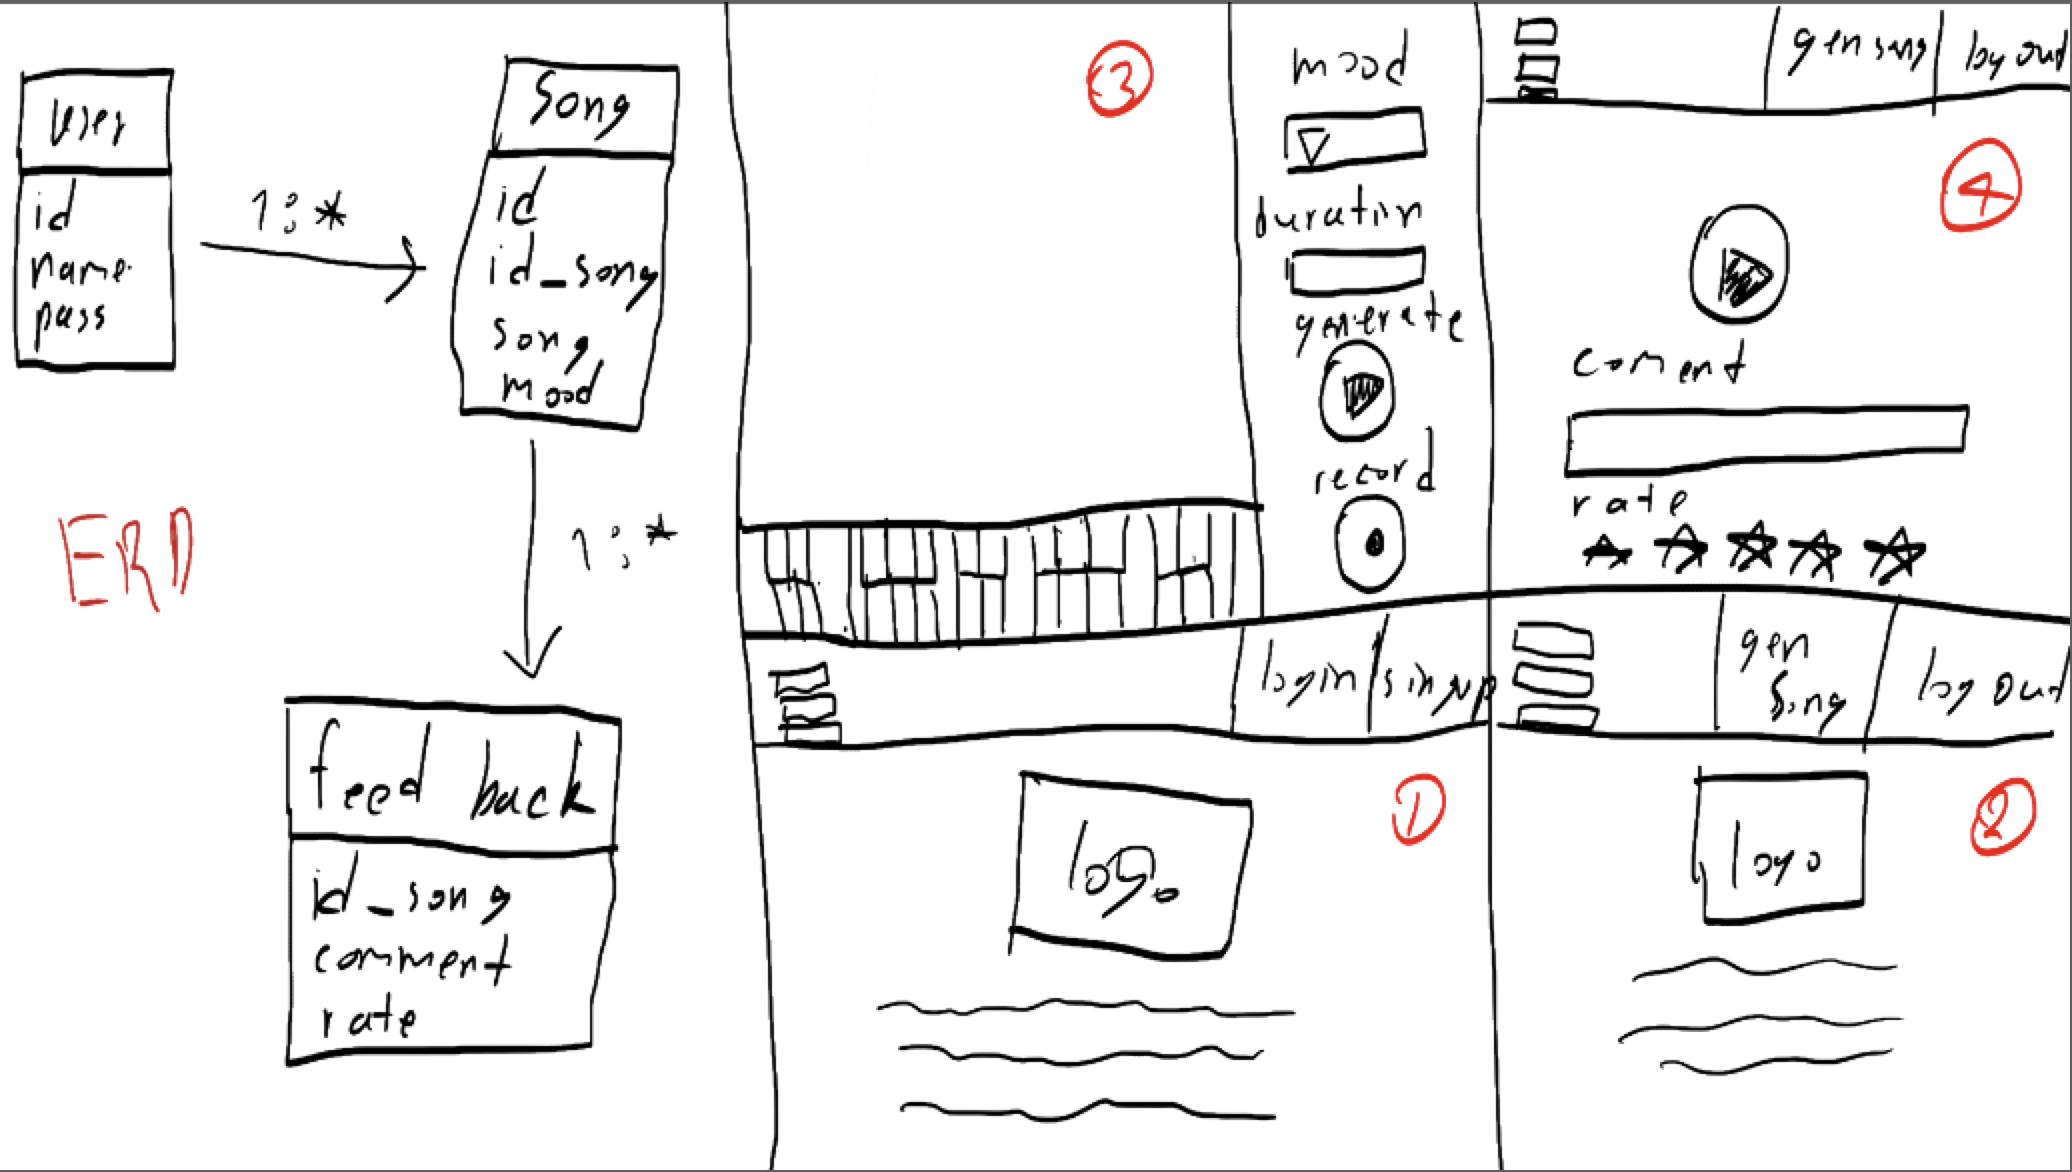 user
id
name
pass
1:*
Song
id
id_song
song
mood
1:*
ERD
feed back
id_song
comment
rate
3
mood
duration
generate
record
gen song
log out
4
coment
rate
login
singup
1
logo
gen
Song
log out
2
logo